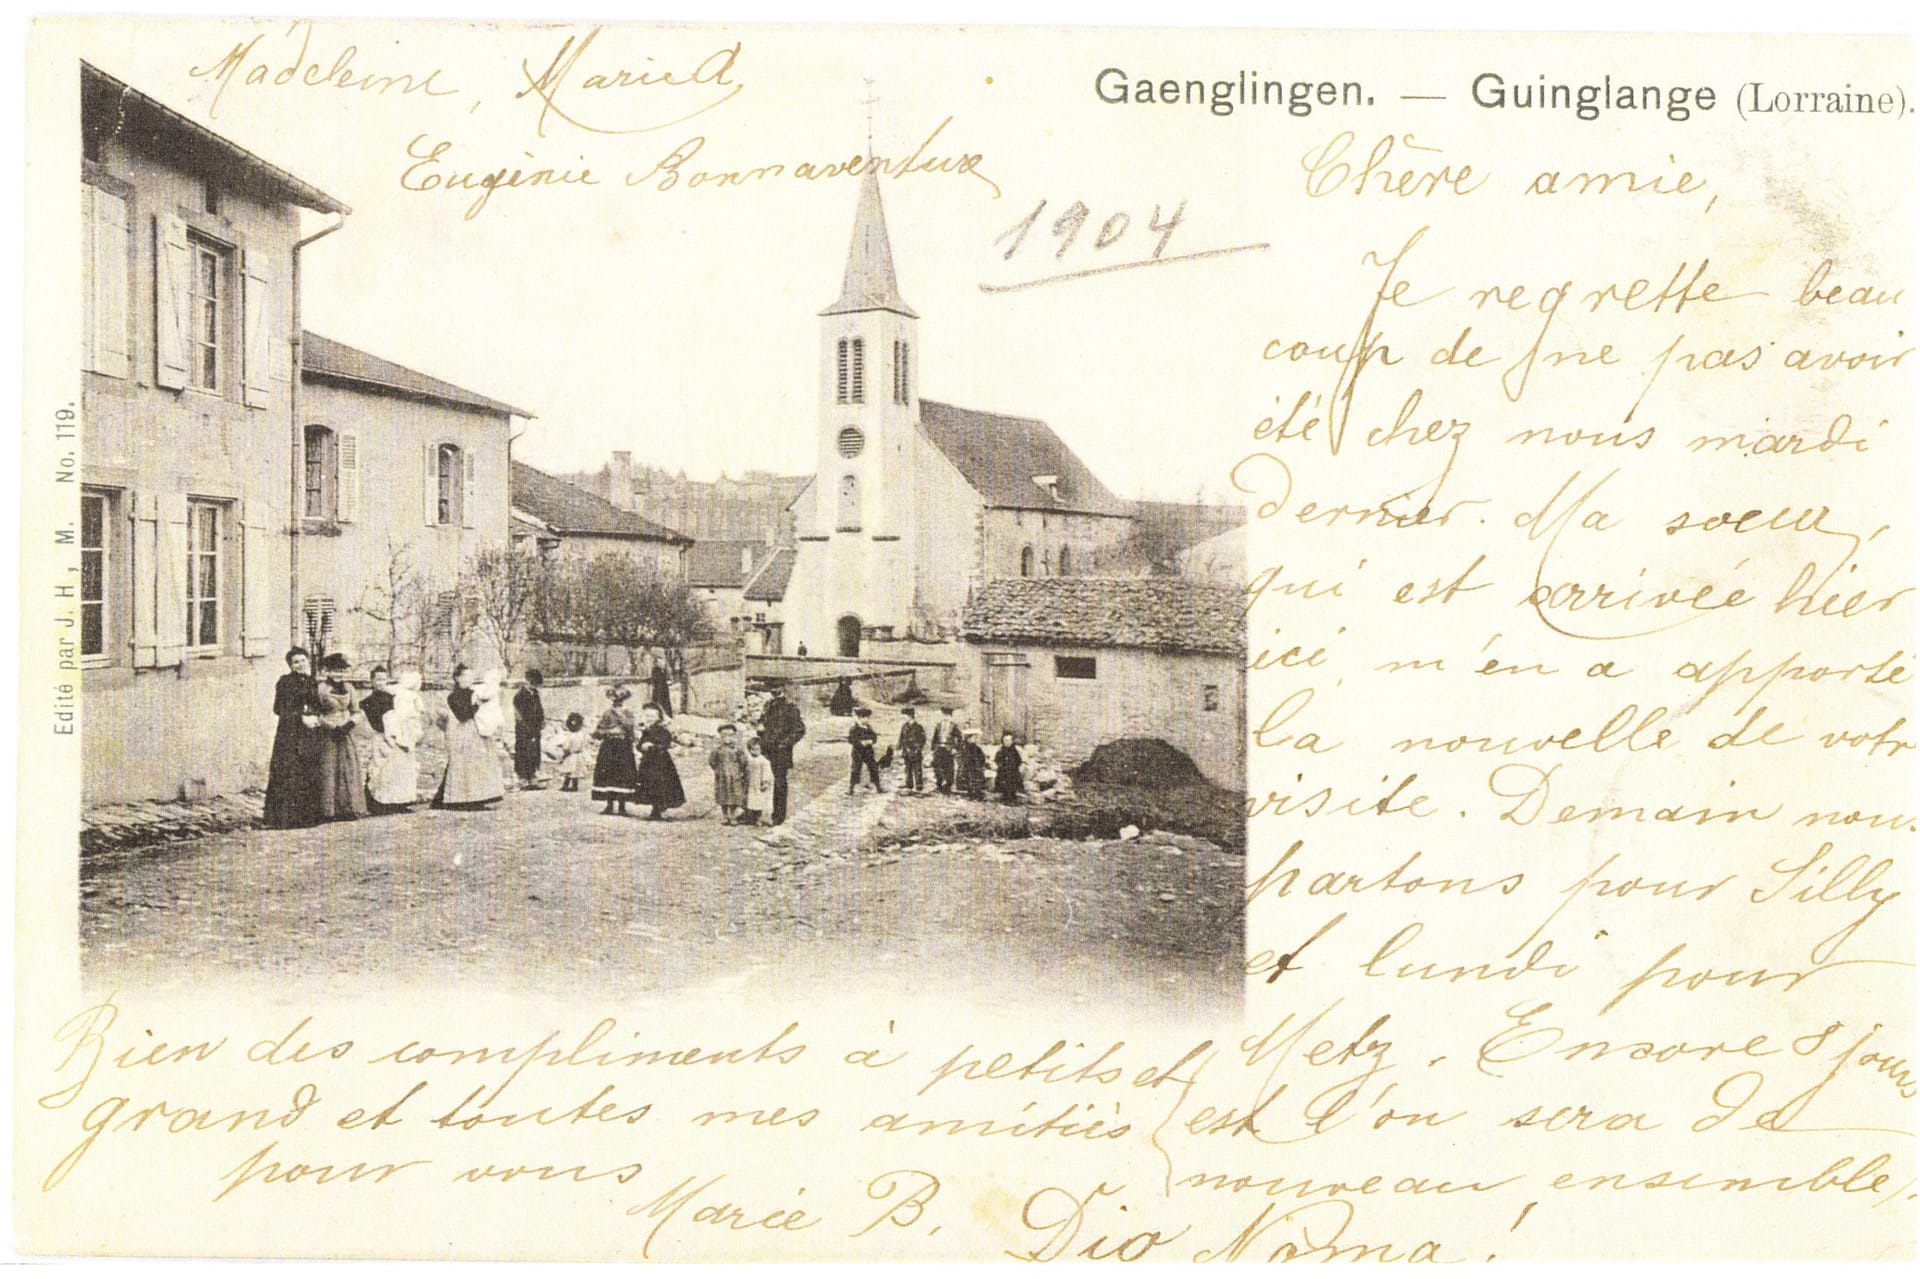 Gaenglingen. — Guinglange (Lorraine).
Madeleine, Marie
Eugènie Bonnaventure
1904
Edité par J. H, M. No. 119.
Chère amie,
Je regrette beau
coup de ne pas avoir
été chez nous mardi
dernier. Ma soeur,
qui est arrivée hier
ici, m'en a apporté
la nouvelle de votre
visite. Demain nous
partons pour Silly
et lundi pour
Metz. Encore 8 jours
et l'on sera de
nouveau ensemble.
Bien des compliments à petits et
grand et toutes mes amitiés
pour vous
Marie B. Dio Noma!